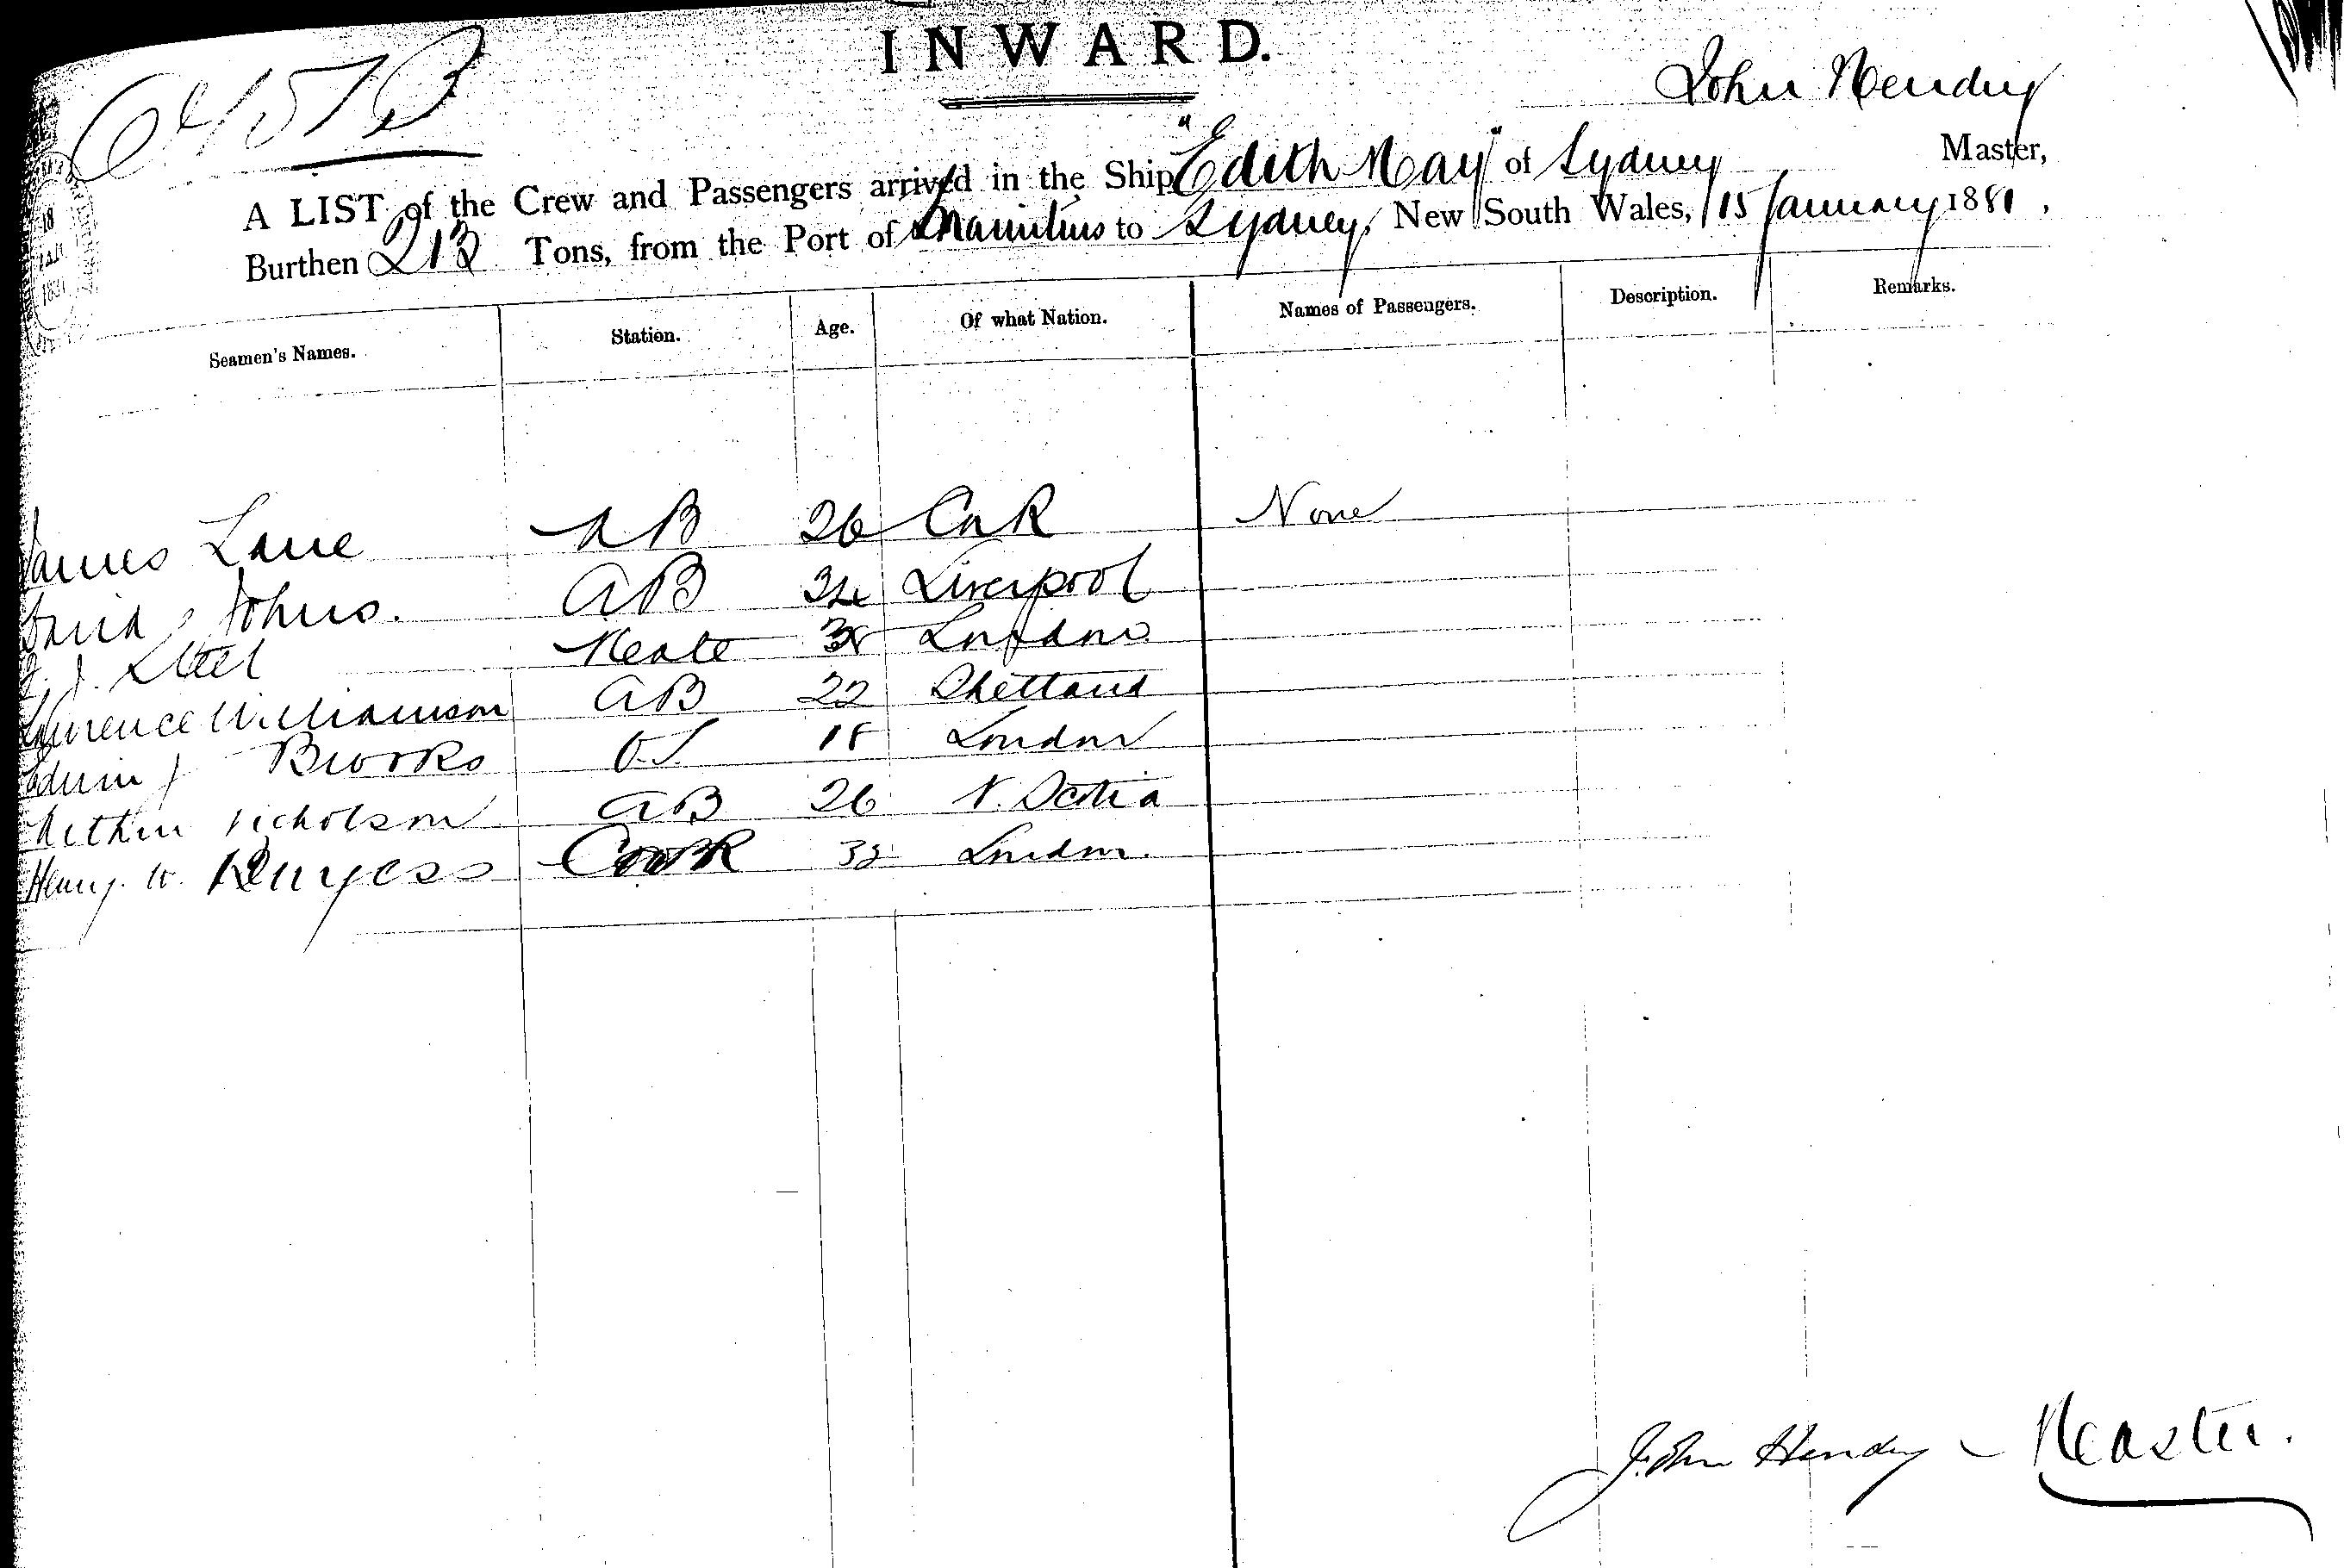 INWARD.
John Hendry
A LIST of the Crew and Passengers arrived in the Ship "Edith May" of Sydney Master,
Burthen 213 Tons, from the Port of Mauritius to Sydney, New South Wales, 15 January 1881,
Seamen's Names. Station. Age. Of what Nation. Names of Passengers. Description. Remarks.
James Lane AB 26 Cork None
David Johns. AB Liverpool
J. Steel Mate London
Laurence Williamson AB 22 Shetland
Edwin J Brooks O.S. 18 London
Nicholson AB 26 N. Scotia
Henry. W. Cook London.
John Hendry - Master.